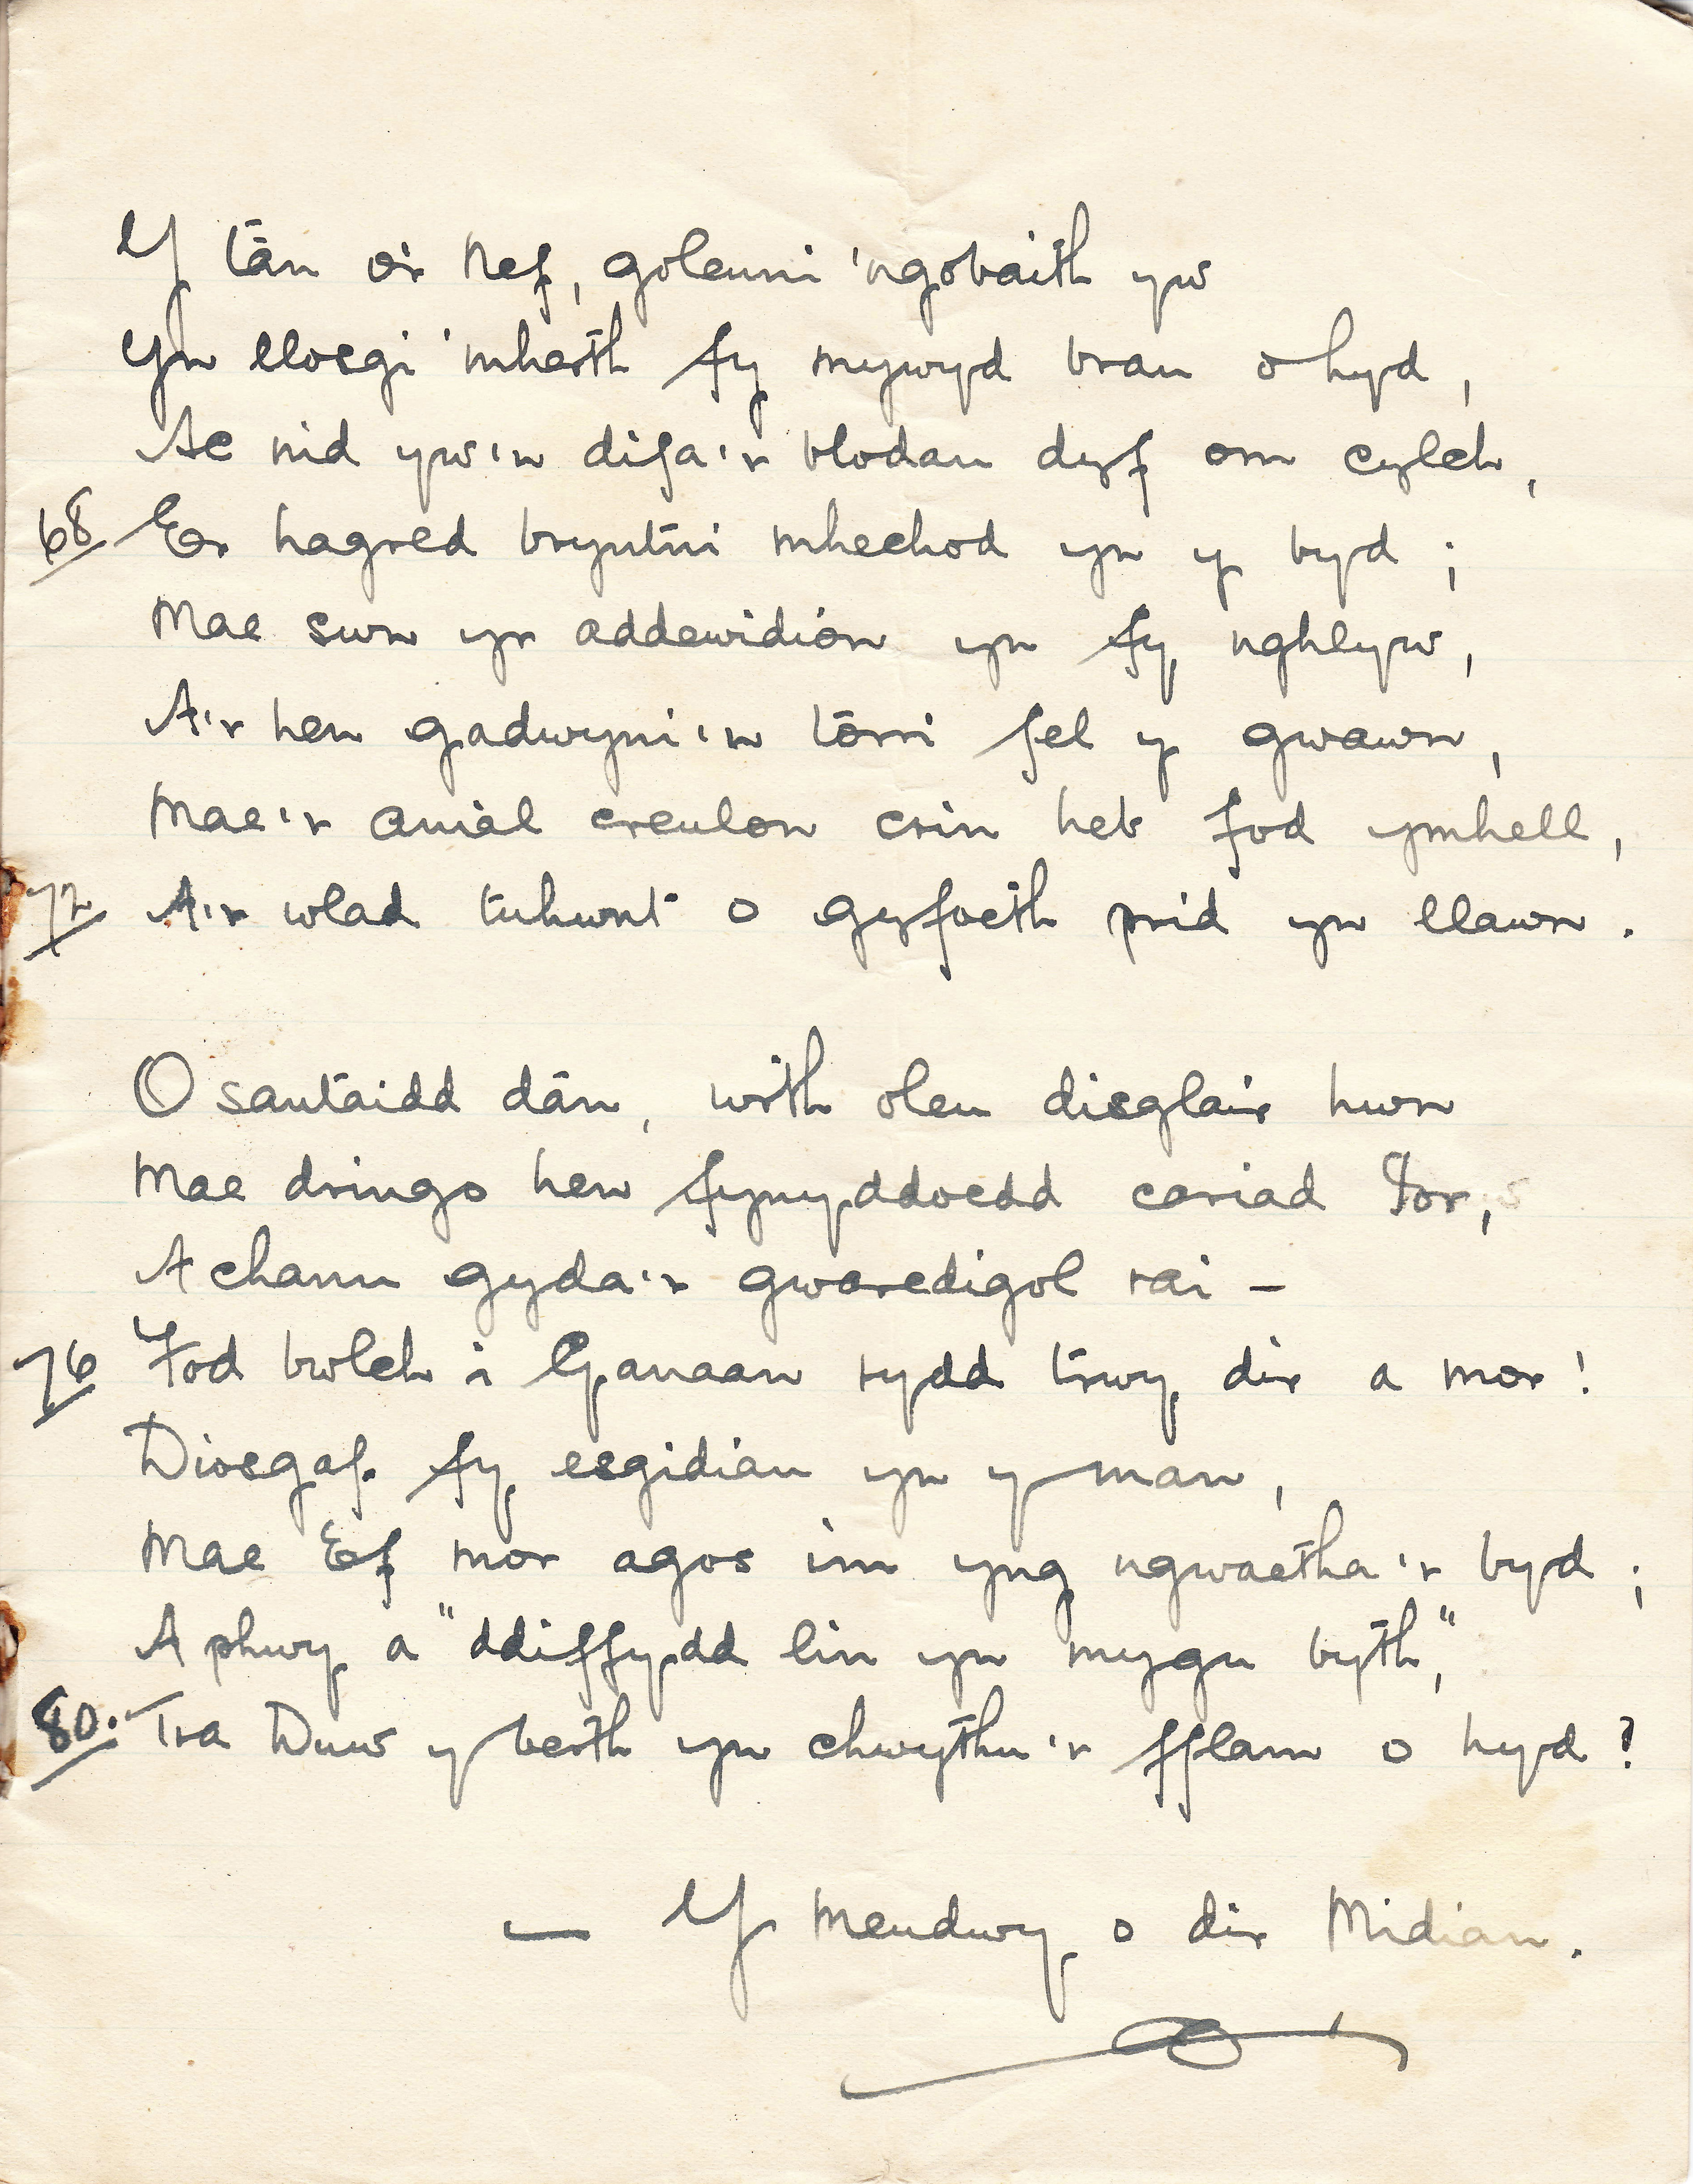 Y tân o'r Nef, goleuni 'ngobaith yw
Yn llosgi 'mherth fy mywyd brau o hyd,
Ac nid yw'n difa'r blodau dyf om cylch,
68 Er hagred bryntni mhechod yn y byd ;
Mae swn yr addewidion yn fy nghlyw,
A'r hen gadwyni'n torri fel y gwawn,
Mae'r anial creulon crin heb fod ymhell,
72 A'r wlad tuhwnt o gyfoeth prid yn llawn .
O santaidd dân, wrth oleu disglair hwn
Mae dringo hen fynyddoedd cariad Iôr,
A chanu gyda'r gwaredigol rai –
76 Fod bwlch i Ganaan rydd trwy dir a mor !
Diosgaf fy esgidiau yn y man,
Mae Ef mor agos im yng ngwaetha'r byd ;
A phwy a "ddiffydd lin yn mygu byth,"
80. Tra Duw y berth yn chwythu'r fflam o hyd ?
— Y Meudwy o dir Midian .